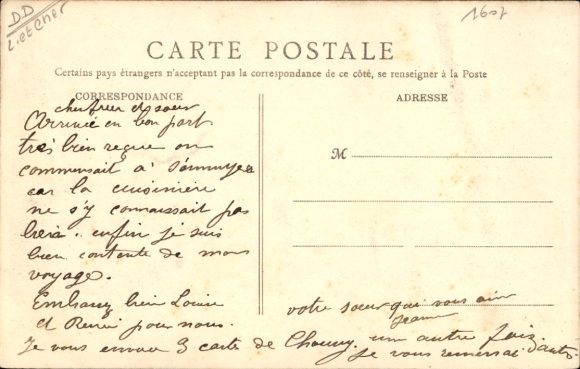 D.D
L. et Cher
1607
CARTE POSTALE
Certains pays étrangers n'acceptant pas la correspondance de ce côté, se renseigner à la Poste
CORRESPONDANCE
ADRESSE
M
cher frere et soeur
Arrivée en bon port
très bien reçue on
commensait à s'ennuyer
car la cuisinière
ne s'y connaissait pas
enfin je suis
bien contente de mon
voyage.
Embrassez bien Louise
et René pour nous.
Je vous envoie 3 carte de Chauny. un autre fois
je vous remerrai d'autres
votre soeur qui vous aime
Jeanne